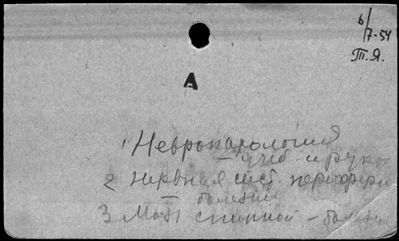 6/
7-54
Т.Я.
А
1 Невропатология
— учеб. и рук
2 Нервная сист. перифери
— болезни
3 Мозг спинной – болезн